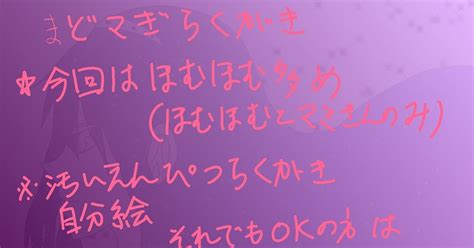 まどマギらくがき
☆今回はほむほむ多め
(ほむほむとマミさんのみ)
※汚いえんぴつらくがき
自分絵
それでもOKの方は